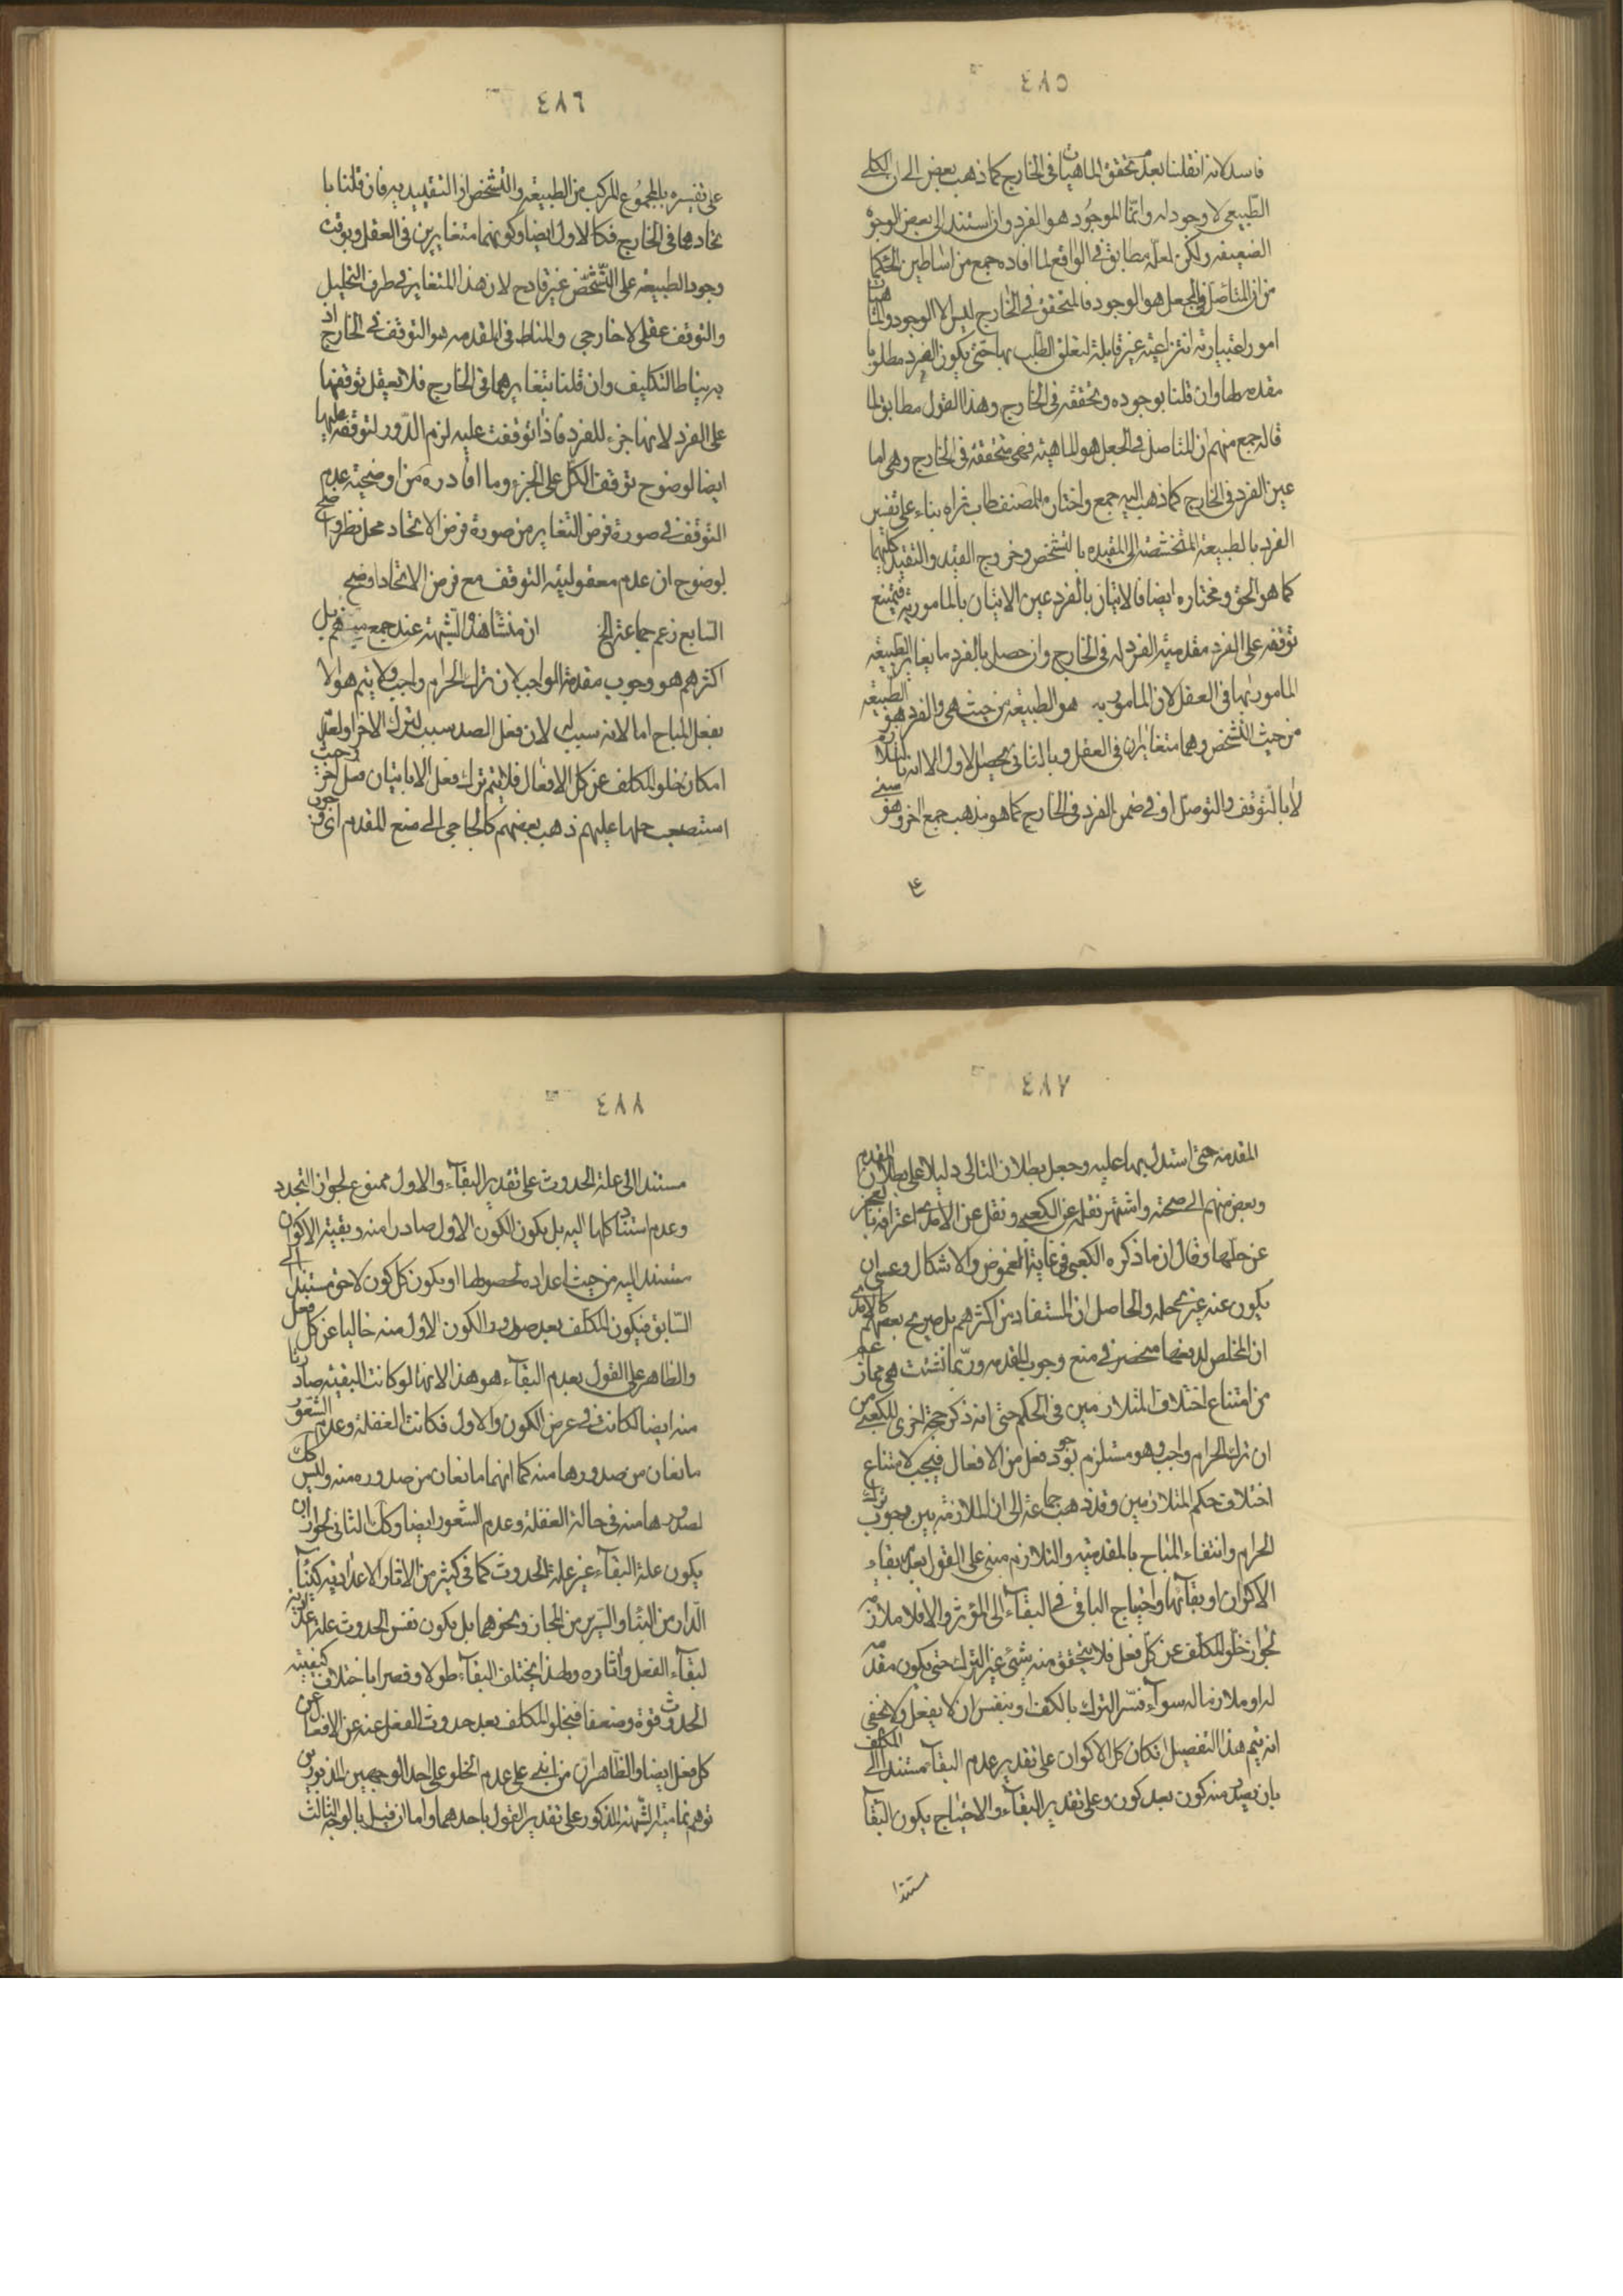 ٤٨٥
فاسد لانه ان قلنا بعدم تحقق الماهيات فى الخارج كما ذهب بعض الى ان الكلى
الطبيعى لا وجود له وانما الموجود هو الفرد وان استند الى بعض الوجوه
الضعيفه ولكن لعله مطابق فى الواقع لما افاده جمع من اساطين الحكما
من ان المتاصل فى الجعل هو الوجود فالمتحقق فى الخارج ليس الا الوجود والماهيات
امور اعتباريه انتزاعيه غير قابلة لتعلق الطلب بها حتى يكون الفرد مطلوبا
مقدمه لها وان قلنا بوجوده وتحققه فى الخارج وهذا القول مطابق لما
قاله جمع منهم ان المتاصل فى الجعل هو الماهيه فهى متحققه فى الخارج وهى اما
عين الفرد فى الخارج كما ذهب اليه جمع واختاره المصنف طاب ثراه بناء على تفسير
الفرد بالطبيعة المتشخصه اى المقيده بالتشخص وخروج القيد والتقيد كليهما
كما هو الحق ومختاره ايضا فالاتيان بالفرد عين الاتيان بالمامور به فيمتنع
توقفه على الفرد مقدميه الفرد له فى الخارج وان حصل بالفرد ما يغاير الطبيعه
المامور بها فى العقل لان المامور به هو الطبيعه من حيث هى والفرد هو الطبيعه
من حيث التشخص وهما متغايران فى العقل وبالثانى يحصل الاول الا انه بالتلازم
لا بالتوقف والتوصل او فى ضمن الفرد فى الخارج كما هو مذهب جمع اخر وهو مبنى
على
٤٨٦
على تفسيره بالمجموع المركب من الطبيعه والتشخص او التقييد به فان قلنا با
تحادهما فى الخارج فكالاول ايضا وكونهما متغايرين فى العقل وتوقف
وجود الطبيعه على التشخص غير قادح لان هذا المتغاير فى ظرف التحليل
والتوقف عقلى لا خارجى والمناط فى المقدمه هو التوقف فى الخارج اذ
به يناط التكليف وان قلنا بتغايرهما فى الخارج فلا يعقل توقفها
على الفرد لانها جزء للفرد فاذا توقفت عليه لزم الدور لتوقفه عليها
ايضا لوضوح توقف الكل على الجزء وما افاده من اوضحية عدم
التوقف فى صورة فرض التغاير من صورة فرض الاتحاد محل نظر واضح
لوضوح ان عدم معقولية التوقف مع فرض الاتحاد اوضح
السابع زعم جماعة الخ ان منشا هذه الشبهة عند جمع منهم بل
اكثرهم هو وجوب مقدمة الواجب لان ترك الحرام واجب ولا يتم هو الا
بفعل المباح اما لانه سبب له لان فعل الضد سبب لترك الاخر او لعدم
امكان خلو المكلف عن كل الافعال فلا يتم ترك فعل الا باتيان فعل اخر وحيث
استصعب حلها عليهم ذهب بعضهم كالحاجبى الى منع المقدم اى وجوب
٤٨٧
المقدمه حتى استدل بها عليه وجعل بطلان التالى دليلا على بطلان المقدم
وبعض منهم الى صحته واشتهر نقله عن الكعبى ونقل عن الامدى اعترافه بالعجز
عن حلها وقال ان ما ذكره الكعبى فى غاية الغموض والاشكال وعسى ان
يكون عند غيرى حله والحاصل ان المستفاد من اكثرهم بل صريح بعضهم كالامدى
ان المخلص لدفعها منحصر فى منع وجوب المقدمه وربما نشئت هى مما زعم
من امتناع اختلاف المتلازمين فى الحكم حتى انه ذكر حجة اخرى للكعبى من
ان ترك الحرام واجب وهو مستلزم لوجود فعل من الافعال فيجب لامتناع
اختلاف حكم المتلازمين وقد ذهب جماعة الى ان الملازمة بين وجوب ترك
الحرام وانتفاء المباح بالمقدميه والتلازم مبنى على القول بعدم بقاء
الاكوان او بقائها واحتياج الباقى فى البقاء الى المؤثر والا فلا ملازمه
لجواز خلو المكلف عن كل فعل فلا يتحقق منه شىء غير الترك حتى يكون مقدمه
له او ملازما له سواء فسر الترك بالكف او بنفس ان لا يفعل ولا يخفى
انه يتم هذا التفصيل ان كان كل الاكوان على تقدير عدم البقاء مستندا الى المكلف
بان يصدر منه كون بعد كون وعلى تقدير البقاء والاحتياج يكون البقاء
مستندا
٤٨٨
مستندا الى علة الحدوث على تقدير البقاء والاول ممنوع لجواز التجدد
وعدم استناد كلها اليه بل يكون الكون الاول صادرا منه وبقية الاكوان
مستند اليه من حيث اعداده لحصولها او يكون كل كون لاحق مستندا الى
السابق فيكون المكلف بعد صدور الكون الاول منه خاليا عن كل فعل
والظاهر على القول بعدم البقاء هو هذا لانها لو كانت البقيه صادرتا
منه ايضا لكانت فى عرض الكون الاول فكانت الغفلة وعدم الشعور
مانعان من صدورها منه كما انهما مانعان من صدوره منه وليس كك
لصدورها منه فى حالة الغفلة وعدم الشعور ايضا وكك الثانى لجواز ان
يكون علة البقاء غير علة الحدوث كما فى كثير من الاثار الاعداديه كبناء
الدار من البناء والسرير من النجار ونحوهما بل يكون نفس الحدوث علة
لبقاء الفعل واثاره ولهذا يختلف البقاء طولا وقصرا باختلاف كيفيته
الحدوث قوة وضعفا فيخلو المكلف بعد حدوث الفعل عنه عن الافعال عن
كل فعل ايضا والظاهر ان من ابقى على عدم الخلو على احد الوجهين المذكورين
توهم تمامية الشبهة المذكور على تقدير القول باحدهما واما ان قيل بالوجه الثالث